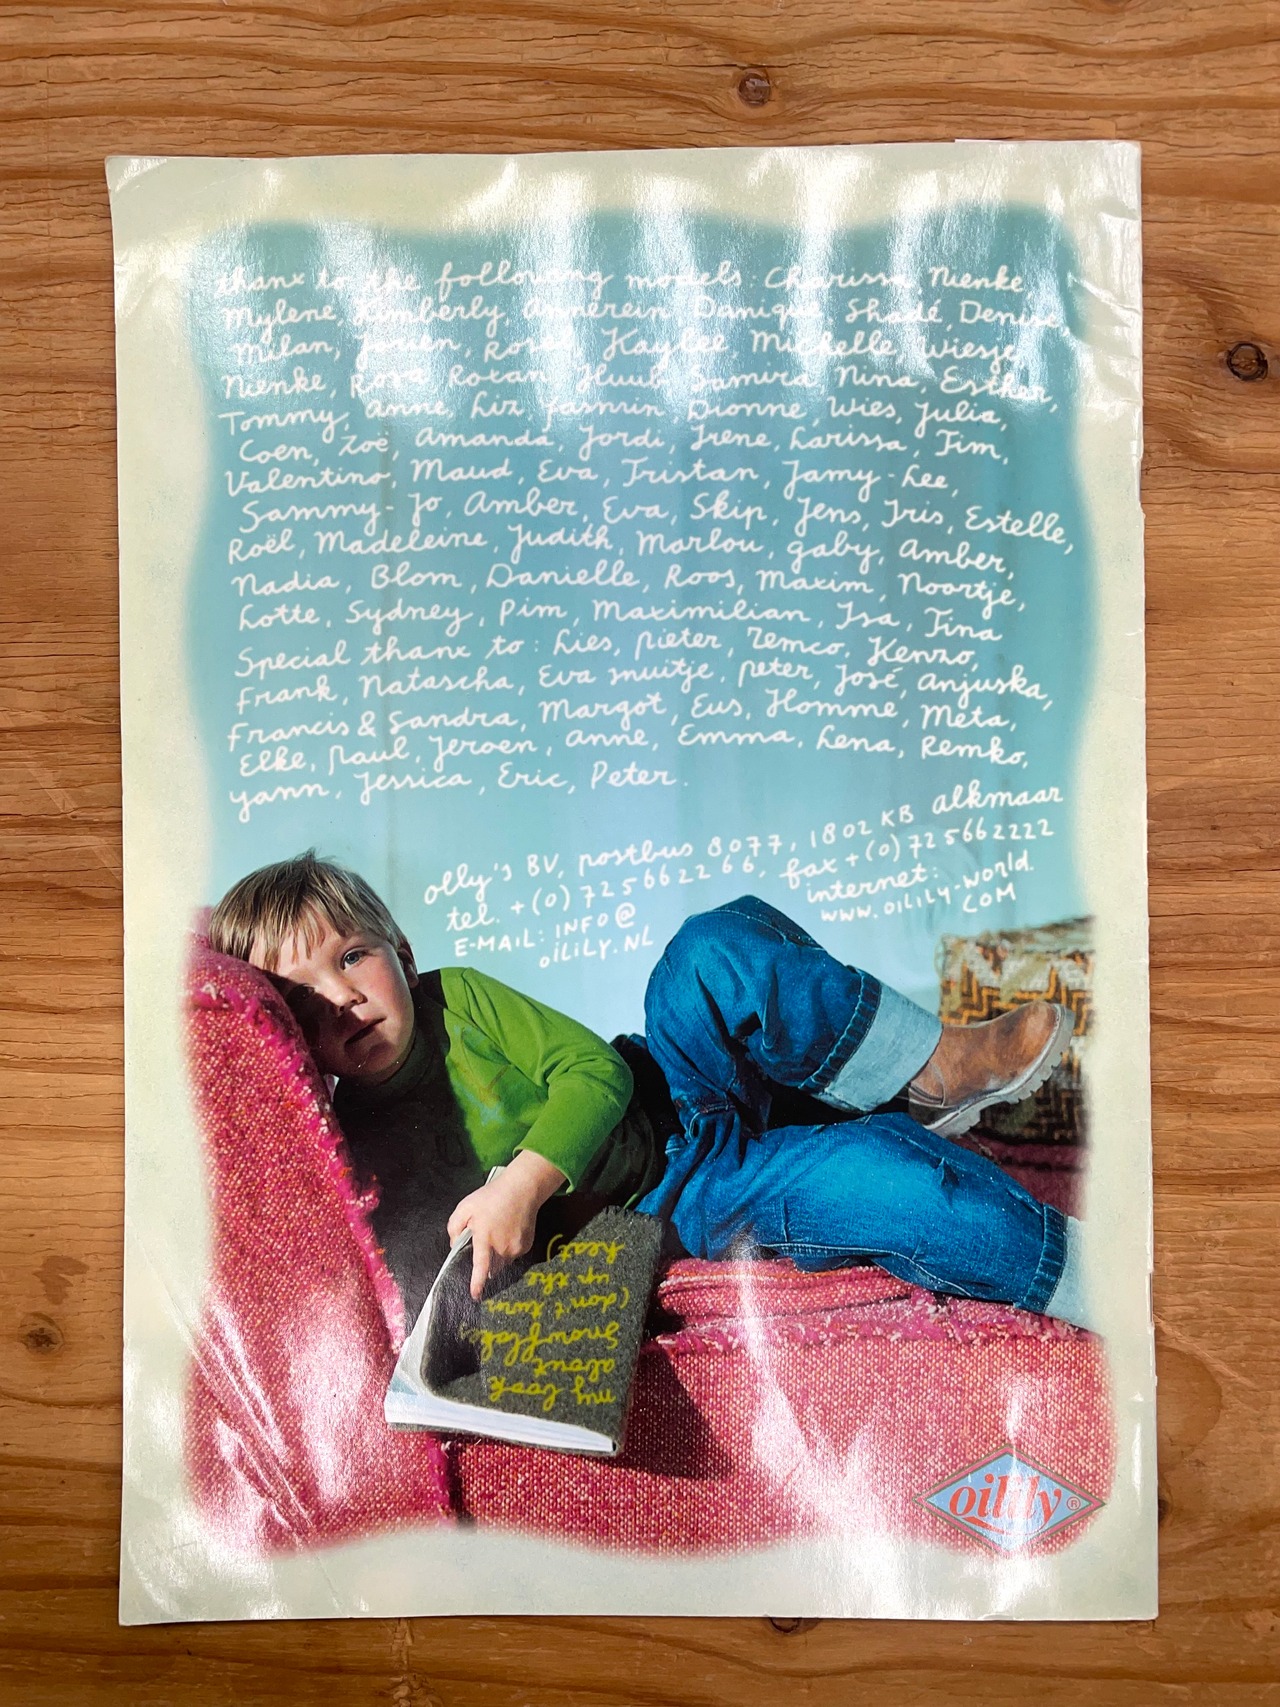 thanx to the following models: Charissa, Nienke
Mylene, Kimberly, Annerein, Danique, Shadé, Denise,
Milan, Rosel, Kaylee, Michelle, Wiesje,
Nienke, Rosa, Roxan, Huub, Samira, Nina, Esther,
Tommy, Anne, Liz, Jasmin, Dionne, Wies, Julia,
Coen, Zoë, Amanda, Jordi, Irene, Larissa, Tim,
Valentino, Maud, Eva, Tristan, Jamy-Lee,
Sammy-Jo, Amber, Eva, Skip, Jens, Iris, Estelle,
Roël, Madeleine, Judith, Marlou, Gaby, Amber,
Nadia, Blom, Danielle, Roos, Maxim, Noortje,
Lotte, Sydney, Pim, Maximilian, Isa, Tina
Special thanx to: Lies, Pieter, Zemco, Kenzo,
Frank, Natascha, Eva Muitje, Peter, José, Anjuska,
Francis & Sandra, Margot, Eus, Homme, Meta,
Elke, Paul, Jeroen, Anne, Emma, Lena, Remko,
Yann, Jessica, Eric, Peter.
olly's BV, postbus 8077, 1802 KB alkmaar
tel. +(0)725662266, fax +(0)725662222
E-MAIL: INFO@
OILILY.NL
internet:
WWW.OILILY-WORLD.
COM
my book
about
snowflakes
(don't turn
up the
heat)
oilily ®